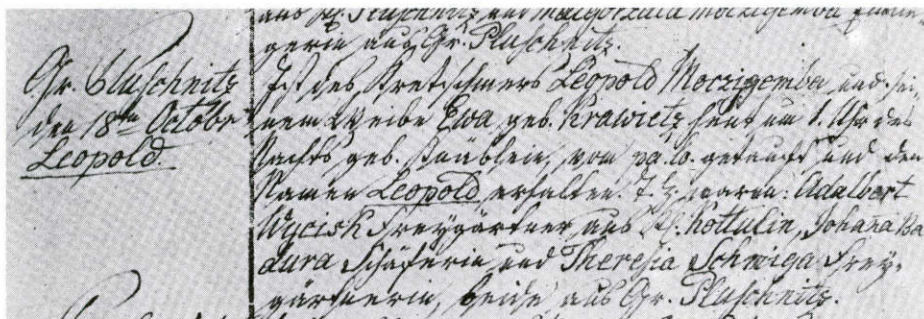 aus Gr. Pluschnitz und Malgorzata Moczigemba
gerin aus Gr. Pluschnitz.
Gr. Pluschnitz
den 18ten Octobr
Leopold.
Ist des Kretschmers Leopold Moczigemba und sei-
nem Weibe Ewa geb. Krawietz heut um 1. Uhr des
Nachts geb. Knäblein, vom getauft und den
Namen Leopold erhalten. T. Z. waren: Adalbert
Wycisk Freygärtner aus Kottulin, Johana Ba
dura Schäferin und Theresia Schmiga Frey-
gärtnerin, beide aus Gr. Pluschnitz.